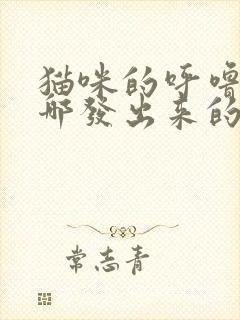 猫咪的呼噜
哪發出来的
常志青